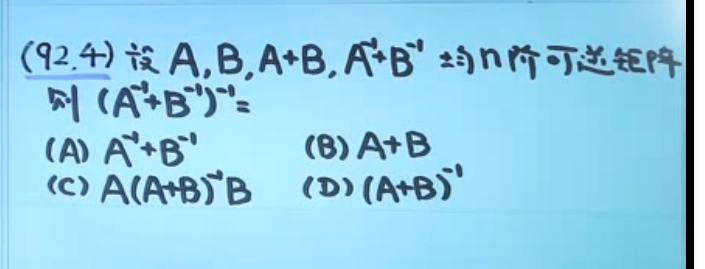 (92.4) 设 A, B, A+B, A⁻¹+B⁻¹ 均n阶可逆矩阵
则 (A⁻¹+B⁻¹)⁻¹=
(A) A⁻¹+B⁻¹ (B) A+B
(C) A(A+B)⁻¹B (D) (A+B)⁻¹